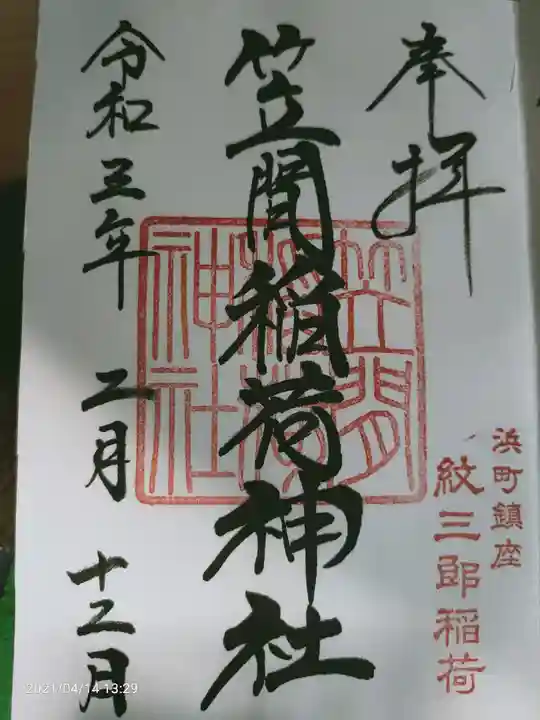 奉拝
浜町鎮座
紋三郎稲荷
笠間稲荷神社
笠間稲荷神社
令和三年 二月 十二日
2021/04/14 13:29